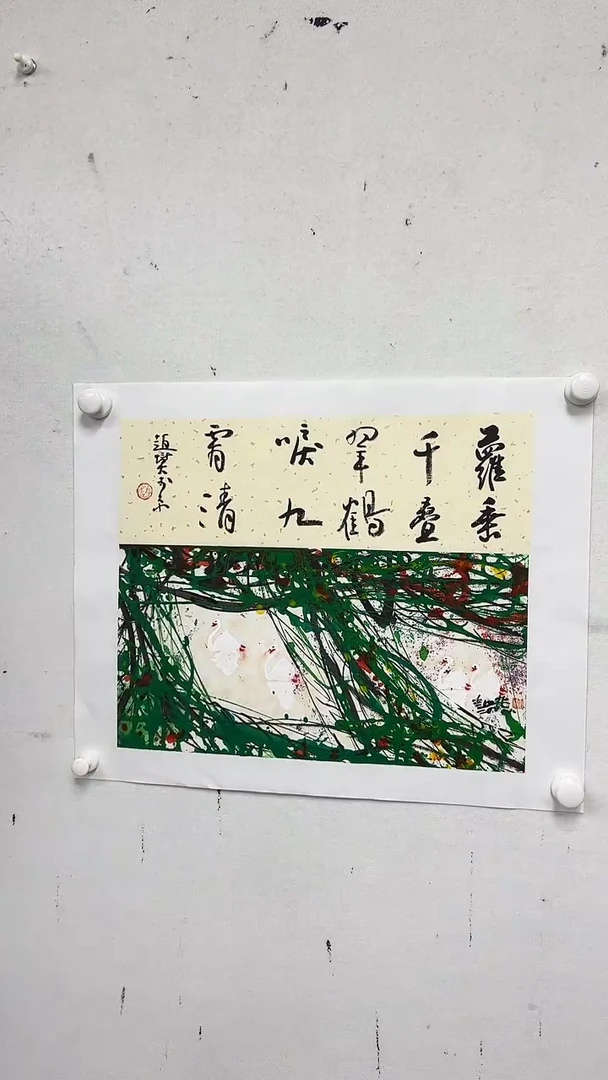 蘿垂
千疊
翠鶴
唳九
霄清